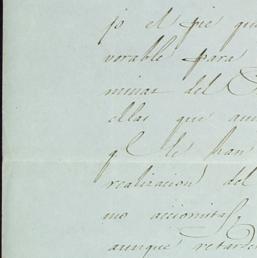 jo el pie que
vorable para
minar del
ellas que aun
ql. le han
realizacion del
mo accionitas,
aunque retarde